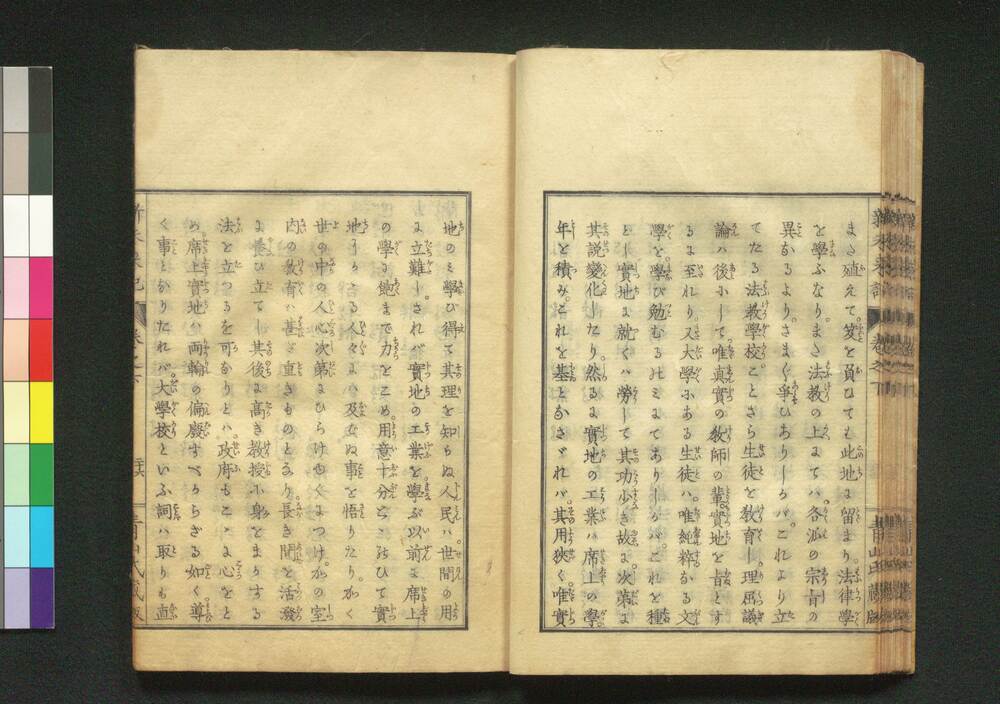 まゝ殖えて。笈を負ひても此地に留まり。法律學
を學ぶなり。また法教の上にてハ。各派の宗旨の
異なるより。さまざま爭ひありしかバ。これより立
てたる法教學校。ことさら生徒を教育し。理屈議
論ハ後にして。唯真實の教師の輩。實地を旨とす
るに至れり又大學にある生徒ハ。唯純粹なる文
學を。學び勉むるのミにてありしかバ。これを種
とし實地に就くハ勞して其功少き故に。次第に
其説變化したり。然るに實地の工業ハ席上の學。
年を積み。これを基となさゞれバ。其用狹く。唯實
地のミ學び得て其理を知らぬ人民ハ。世間の用
に立難し。されバ實地の工業を。學ぶ以前に席上
の學に飽まで力をこめ。用意十分とゝのひて實
地にかゝる人々にハ及ばぬ事を悟りたり。かく
世の中の人心次第にひらけゆくにつけ。かの室
内の教育ハ甚だ重きものとなり。長き間を活潑
に養ひ立てし其後に高き教授に身をまかする
法を立つるを可なりとハ。政府もこゝに心をと
め。席上實地ハ両輪の偏廢すべからざる如く。導
く事となりたれバ。大學校といふ詞ハ取りも直
新未來記 卷之下 青山氏藏版